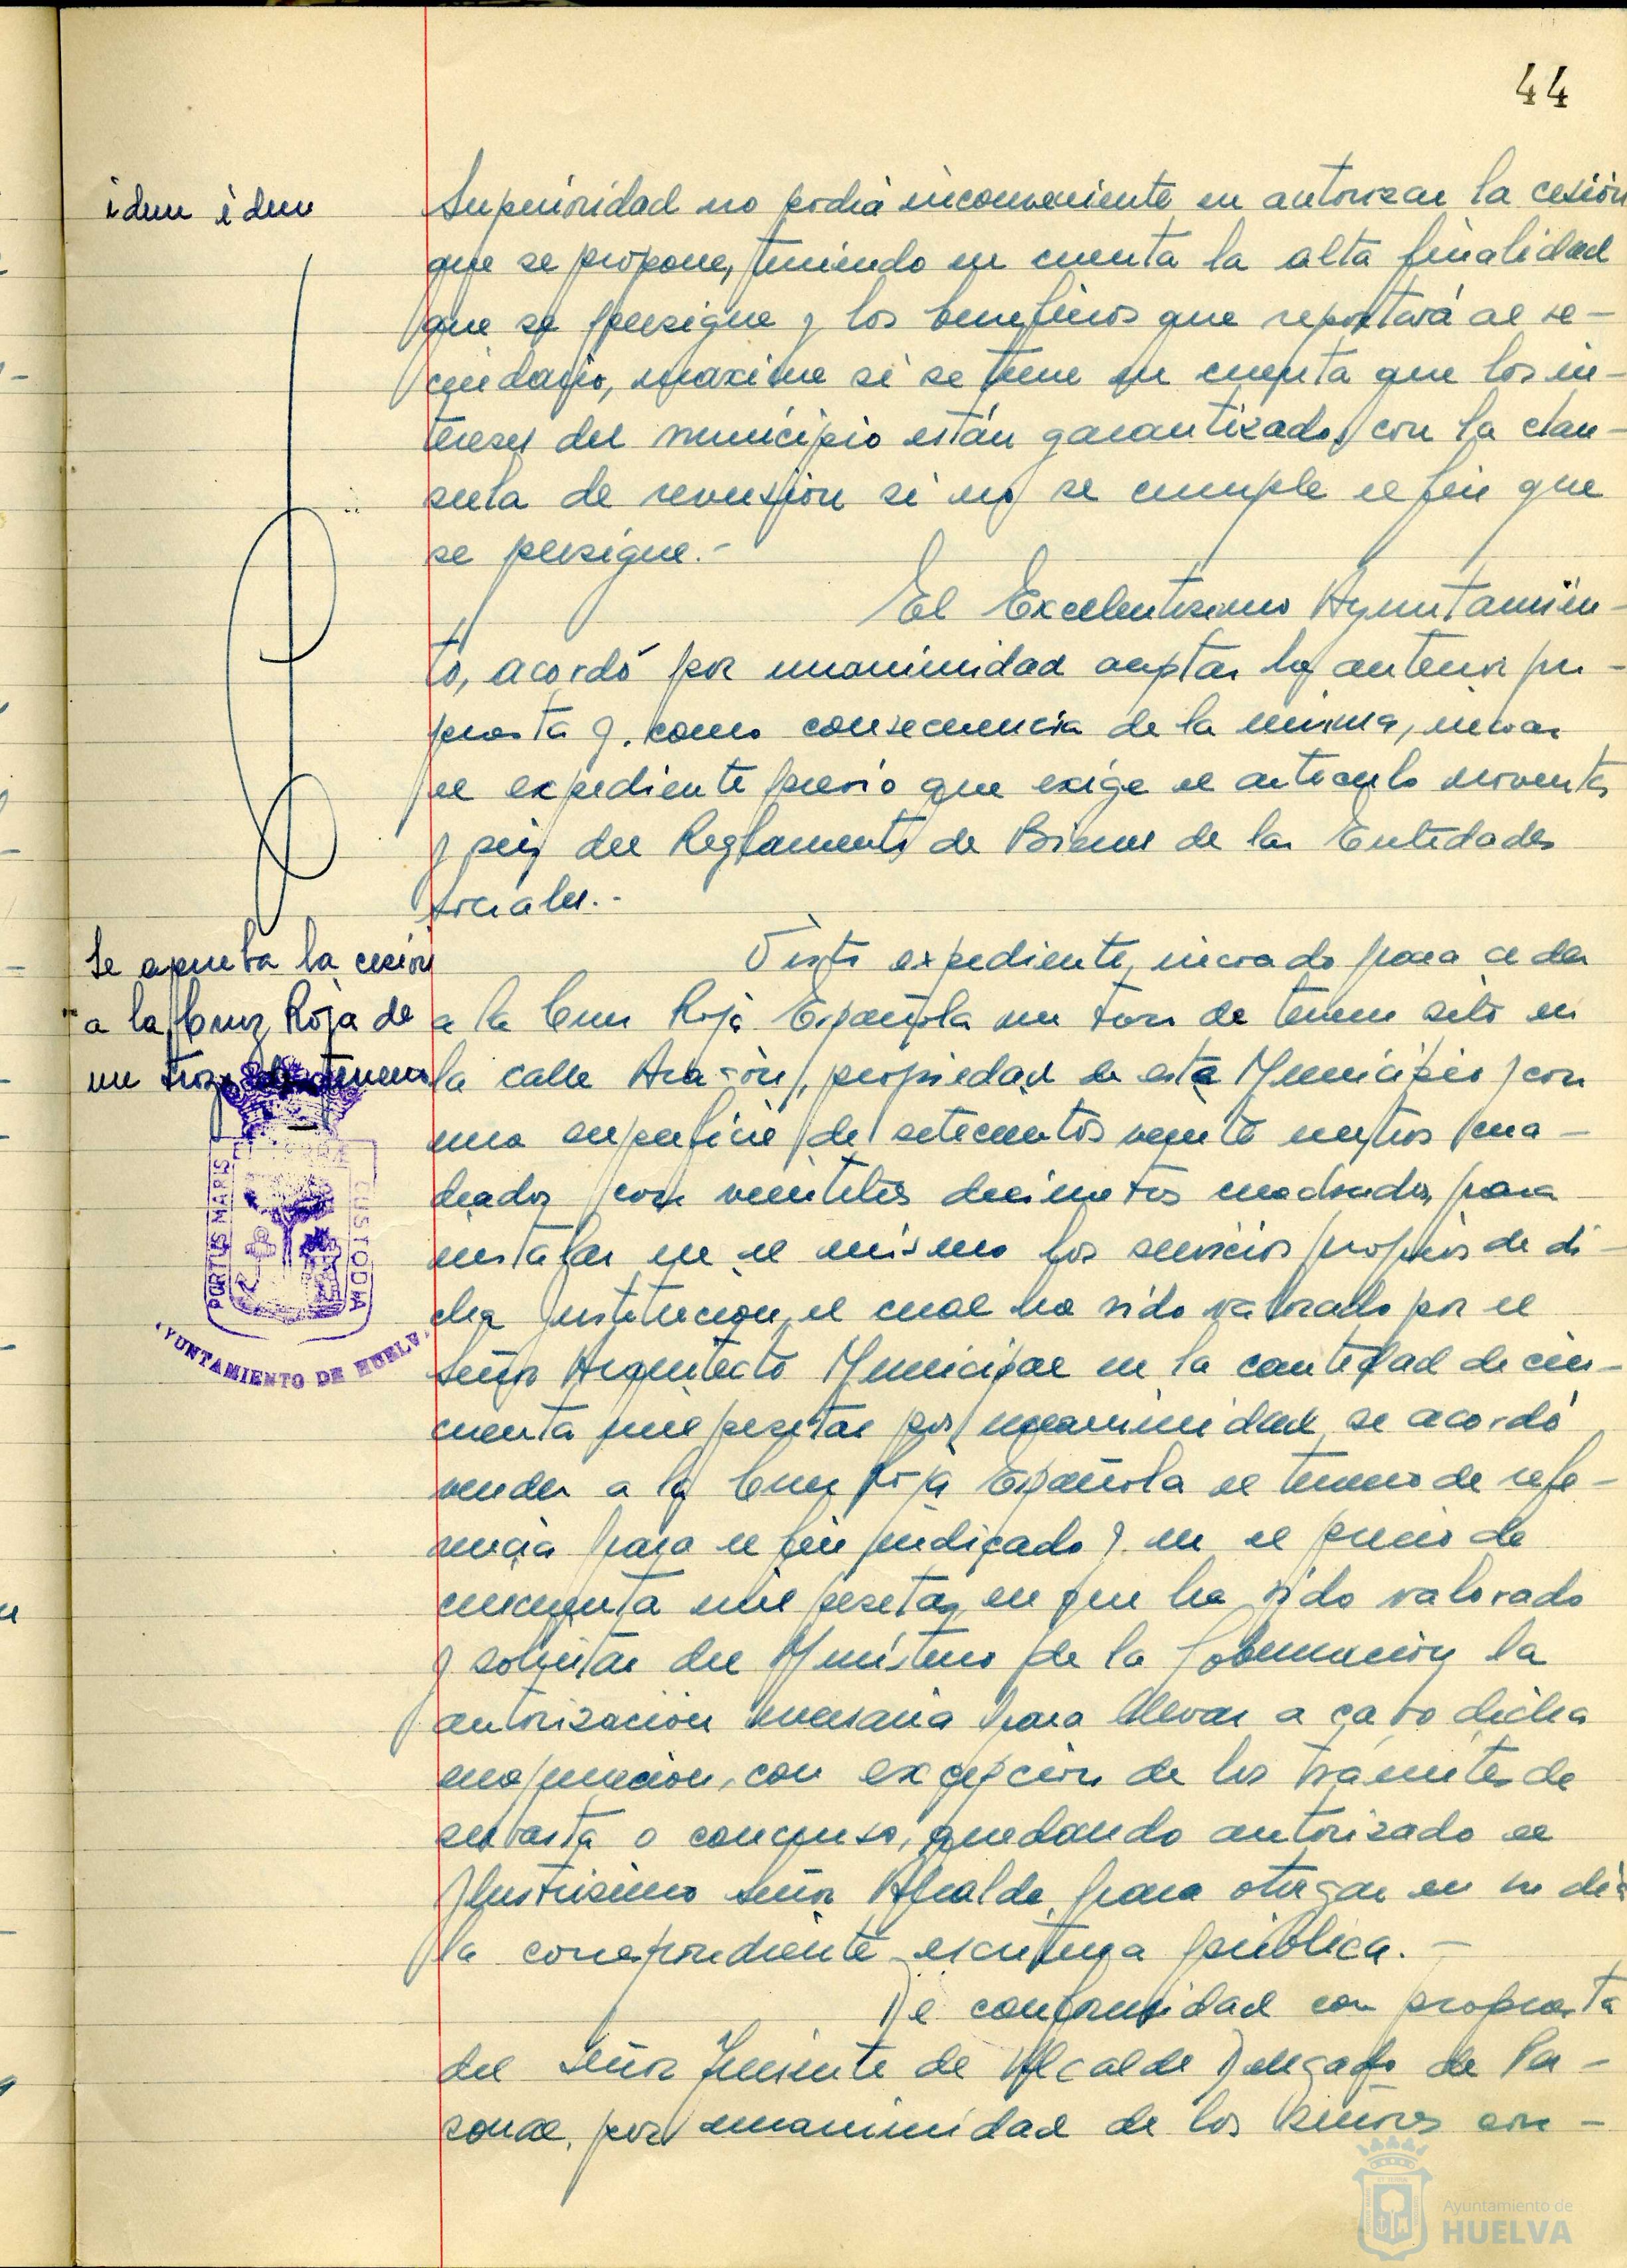 44
idem idem
Superioridad no podrá inconveniente en autorizar la cesión
que se propone, teniendo en cuenta la alta finalidad
que se persigue y los beneficios que reportará al ve-
cindario, maxime si se tiene en cuenta que los in-
tereses del municipio están garantizados con la clau-
sula de reversión si no se cumple el fin que
se persigue.-
El Excelentisimo Ayuntamien-
to, acordó por unanimidad aceptar la anterior pro-
puesta y, como consecuencia de la misma, incoar
el expediente previo que exige el articulo noventa
y seis del Reglamento de Bienes de las Entidades
Locales.-
Se aprueba la cesión
a la Cruz Roja de
un trozo de terreno
Visto expediente, incoado para ceder
a la Cruz Roja Española un trozo de terreno sito en
la calle Aragón, propiedad de este Municipio con
una superficie de setecientos veinte metros cua-
drados con veintitres decimetros cuadrados, para
instalar en el mismo los servicios propios de di-
cha Institución, el cual ha sido valorado por el
Señor Arquitecto Municipal en la cantidad de cin-
cuenta mil pesetas por unanimidad, se acordó
vender a la Cruz Roja Española el terreno de refe-
rencia para el fin indicado y en el precio de
cincuenta mil pesetas, en que ha sido valorado
y solicitar del Ministerio de la Gobernación la
autorización necesaria para llevar a cabo dicha
enajenación, con excepción de los trámites de
subasta o concurso, quedando autorizado el
Ilustrisimo Señor Alcalde, para otorgar en su día
la correspondiente escritura pública.-
De conformidad con propuesta
del Señor Teniente de Alcalde Delegado de Per-
sonal, por unanimidad de los Señores con-
PORTUS MARIS
CUSTODIA
AYUNTAMIENTO DE HUELVA
Ayuntamiento de
HUELVA